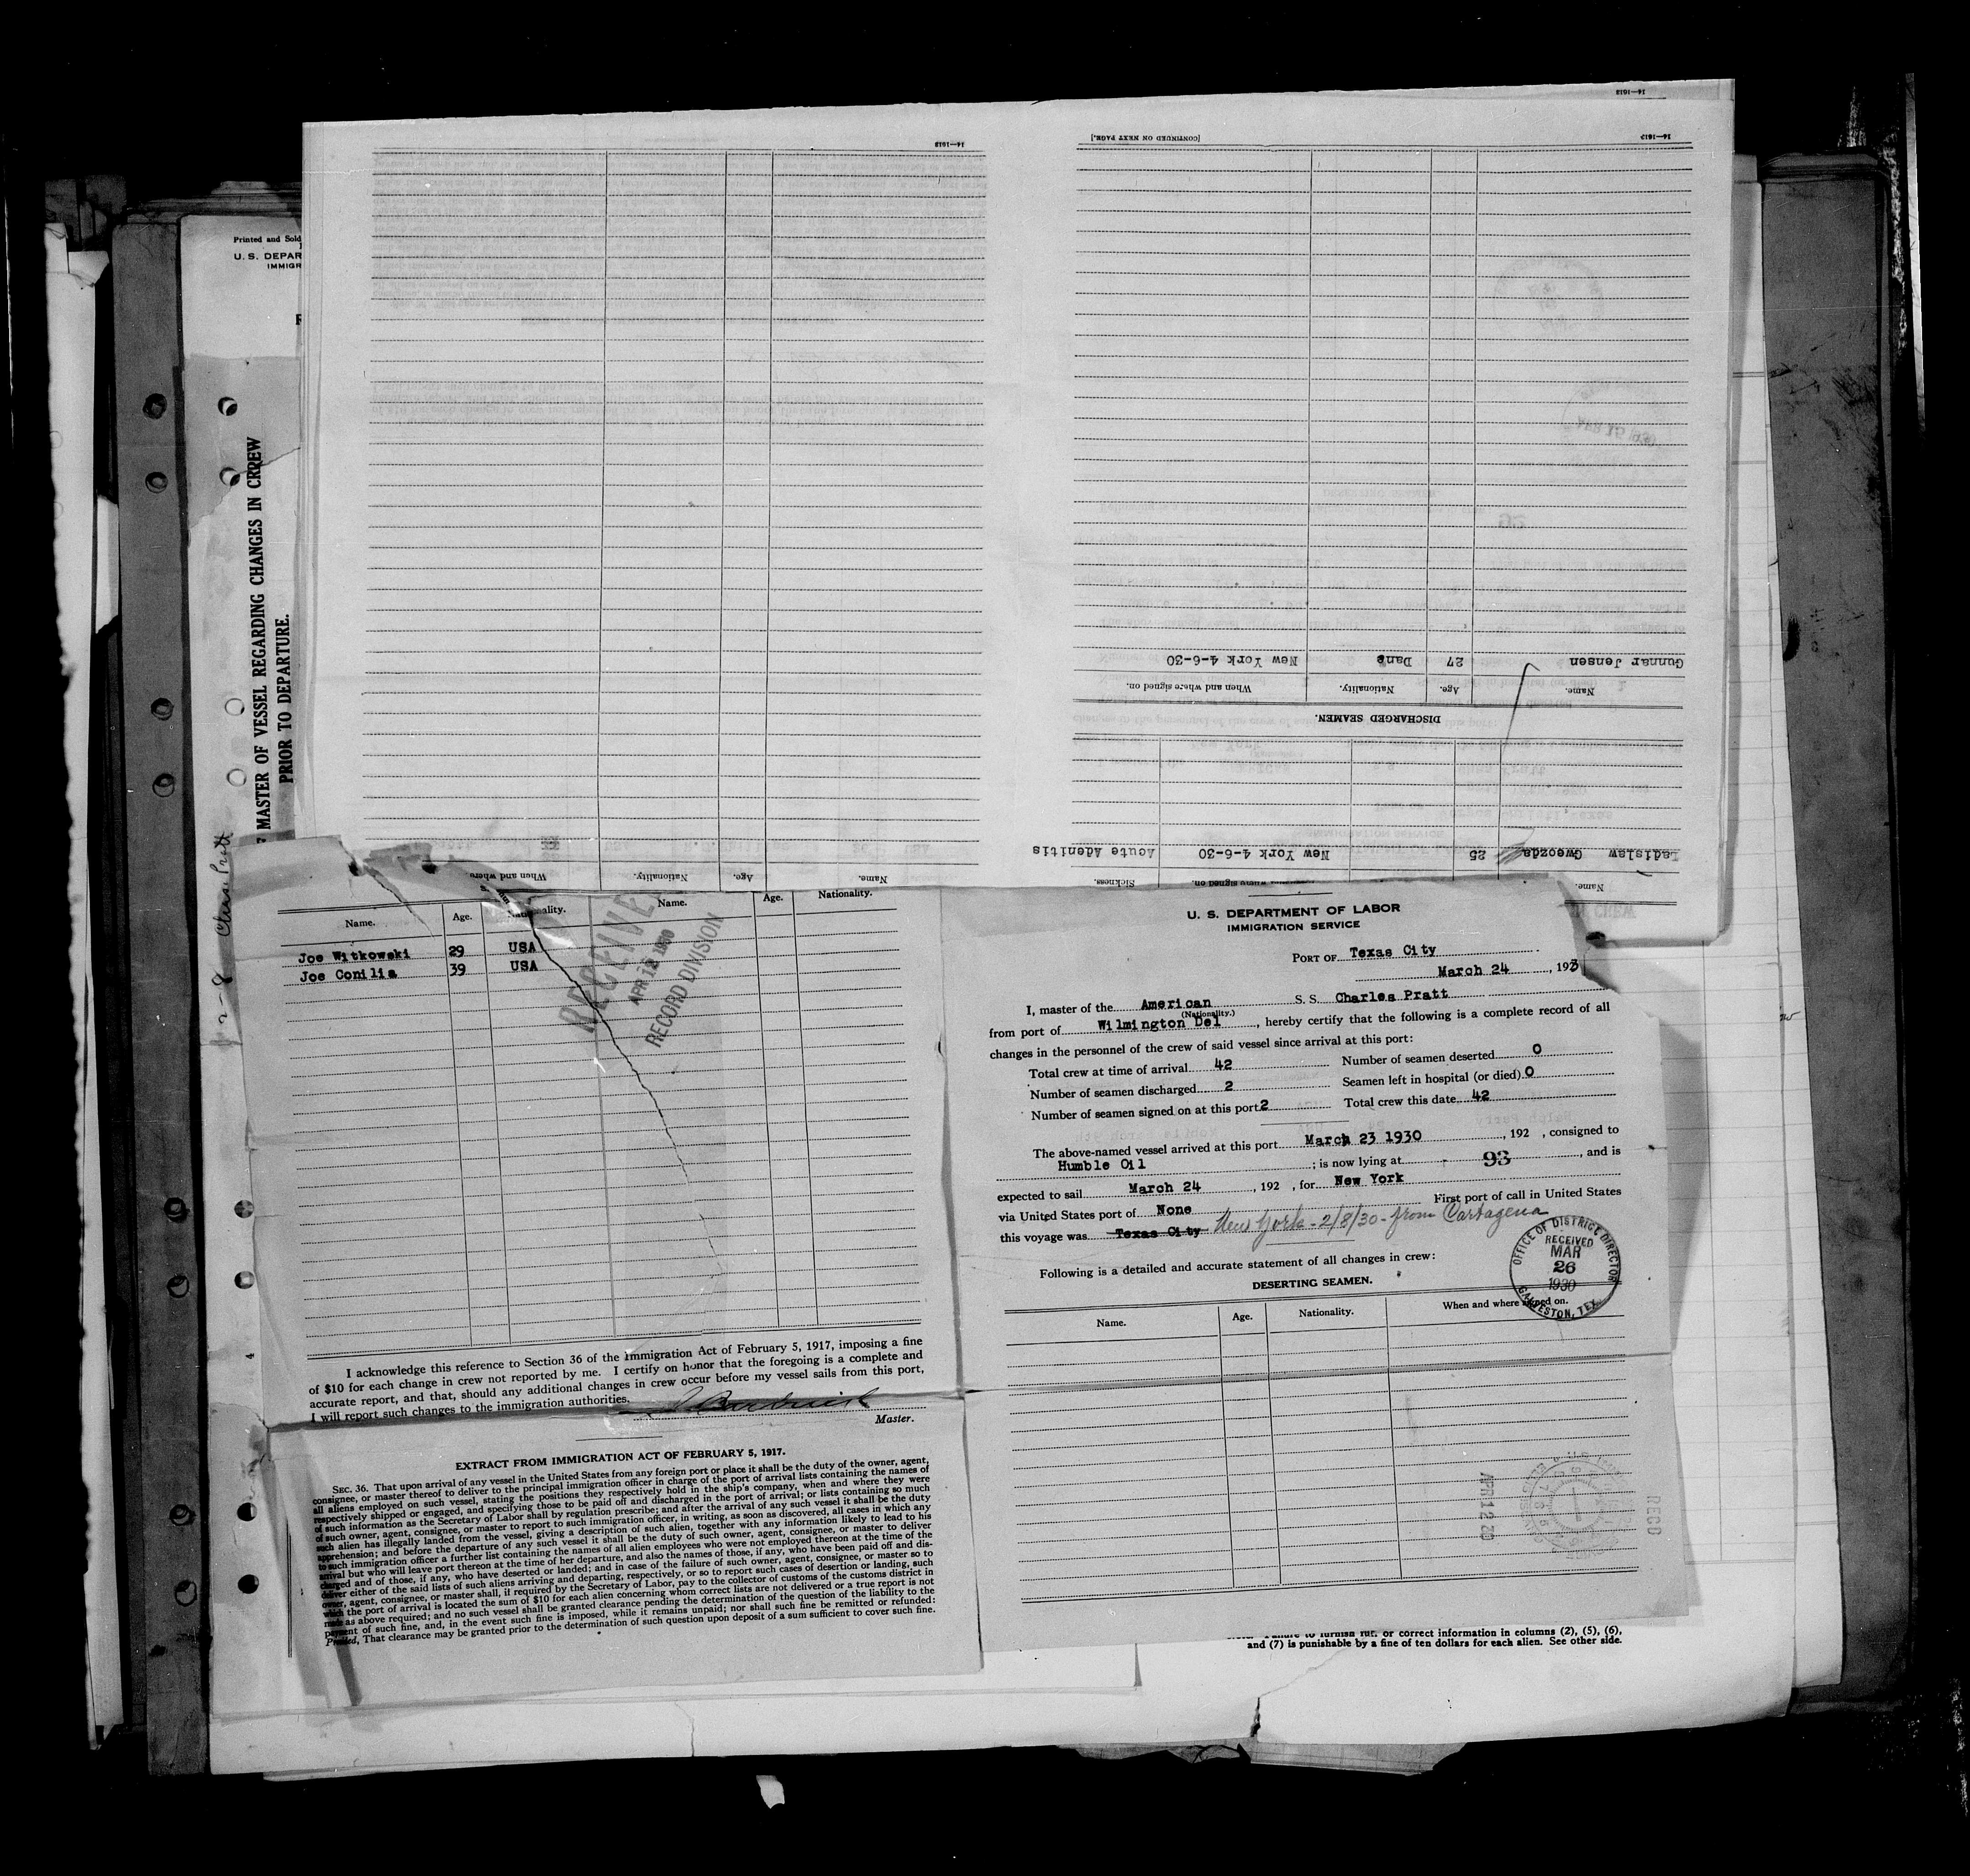 14—1613
[CONTINUED ON NEXT PAGE.]
14—1613
14—1613
Printed and Sold
U. S. DEPAR
IMMIGR
MASTER OF VESSEL REGARDING CHANGES IN CREW
PRIOR TO DEPARTURE.
Gunnar Jensen 27 Dane New York 4-6-30
Name. Age. Nationality. When and where signed on.
DISCHARGED SEAMEN.
Ladislaw Gweozda 25 New York 4-6-30 Acute Adenitis
Name. where signed on. Sickness.
Name. Age. Nationality. When and where
Name. Age. Nationality. Name. Age. Nationality.
Joe Witkowski 29 USA
Joe Conilia 39 USA
RECEIVE
APR 12 1930
RECORD DIVISION
I acknowledge this reference to Section 36 of the Immigration Act of February 5, 1917, imposing a fine
of $10 for each change in crew not reported by me. I certify on honor that the foregoing is a complete and
accurate report, and that, should any additional changes in crew occur before my vessel sails from this port,
I will report such changes to the immigration authorities.
Master.
EXTRACT FROM IMMIGRATION ACT OF FEBRUARY 5, 1917.
SEC. 36. That upon arrival of any vessel in the United States from any foreign port or place it shall be the duty of the owner, agent,
consignee, or master thereof to deliver to the principal immigration officer in charge of the port of arrival lists containing the names of
all aliens employed on such vessel, stating the positions they respectively hold in the ship's company, when and where they were
respectively shipped or engaged, and specifying those to be paid off and discharged in the port of arrival; or lists containing so much
of such information as the Secretary of Labor shall by regulation prescribe; and after the arrival of any such vessel it shall be the duty
of such owner, agent, consignee, or master to report to such immigration officer, in writing, as soon as discovered, all cases in which any
such alien has illegally landed from the vessel, giving a description of such alien, together with any information likely to lead to his
apprehension; and before the departure of any such vessel it shall be the duty of such owner, agent, consignee, or master to deliver
to such immigration officer a further list containing the names of all alien employees who were not employed thereon at the time of the
arrival but who will leave port thereon at the time of her departure, and also the names of those, if any, who have been paid off and dis-
charged and of those, if any, who have deserted or landed; and in case of the failure of such owner, agent, consignee, or master so to
deliver either of the said lists of such aliens arriving and departing, respectively, or so to report such cases of desertion or landing, such
owner, agent, consignee, or master shall, if required by the Secretary of Labor, pay to the collector of customs of the customs district in
which the port of arrival is located the sum of $10 for each alien concerning whom correct lists are not delivered or a true report is not
made as above required; and no such vessel shall be granted clearance pending the determination of the question of the liability to the
payment of such fine, and, in the event such fine is imposed, while it remains unpaid; nor shall such fine be remitted or refunded:
Provided, That clearance may be granted prior to the determination of such question upon deposit of a sum sufficient to cover such fine.
U. S. DEPARTMENT OF LABOR
IMMIGRATION SERVICE
PORT OF Texas City
March 24, 193
I, master of the American S. S. Charles Pratt
(Nationality.)
from port of Wilmington Del, hereby certify that the following is a complete record of all
changes in the personnel of the crew of said vessel since arrival at this port:
Total crew at time of arrival 42 Number of seamen deserted 0
Number of seamen discharged 2 Seamen left in hospital (or died) 0
Number of seamen signed on at this port 2 Total crew this date 42
The above-named vessel arrived at this port March 23 1930, 192 , consigned to
Humble Oil ; is now lying at 93, and is
expected to sail March 24, 192 , for New York
via United States port of None First port of call in United States
this voyage was Texas City New York - 2/8/30 - from Cartagena
Following is a detailed and accurate statement of all changes in crew:
DESERTING SEAMEN.
OFFICE OF DISTRICT DIRECTOR
RECEIVED
MAR
26
1930
GALVESTON, TEX.
Name. Age. Nationality. When and where signed on.
APR 12 30
RECD
and (7) is punishable by a fine of ten dollars for each alien. See other side.